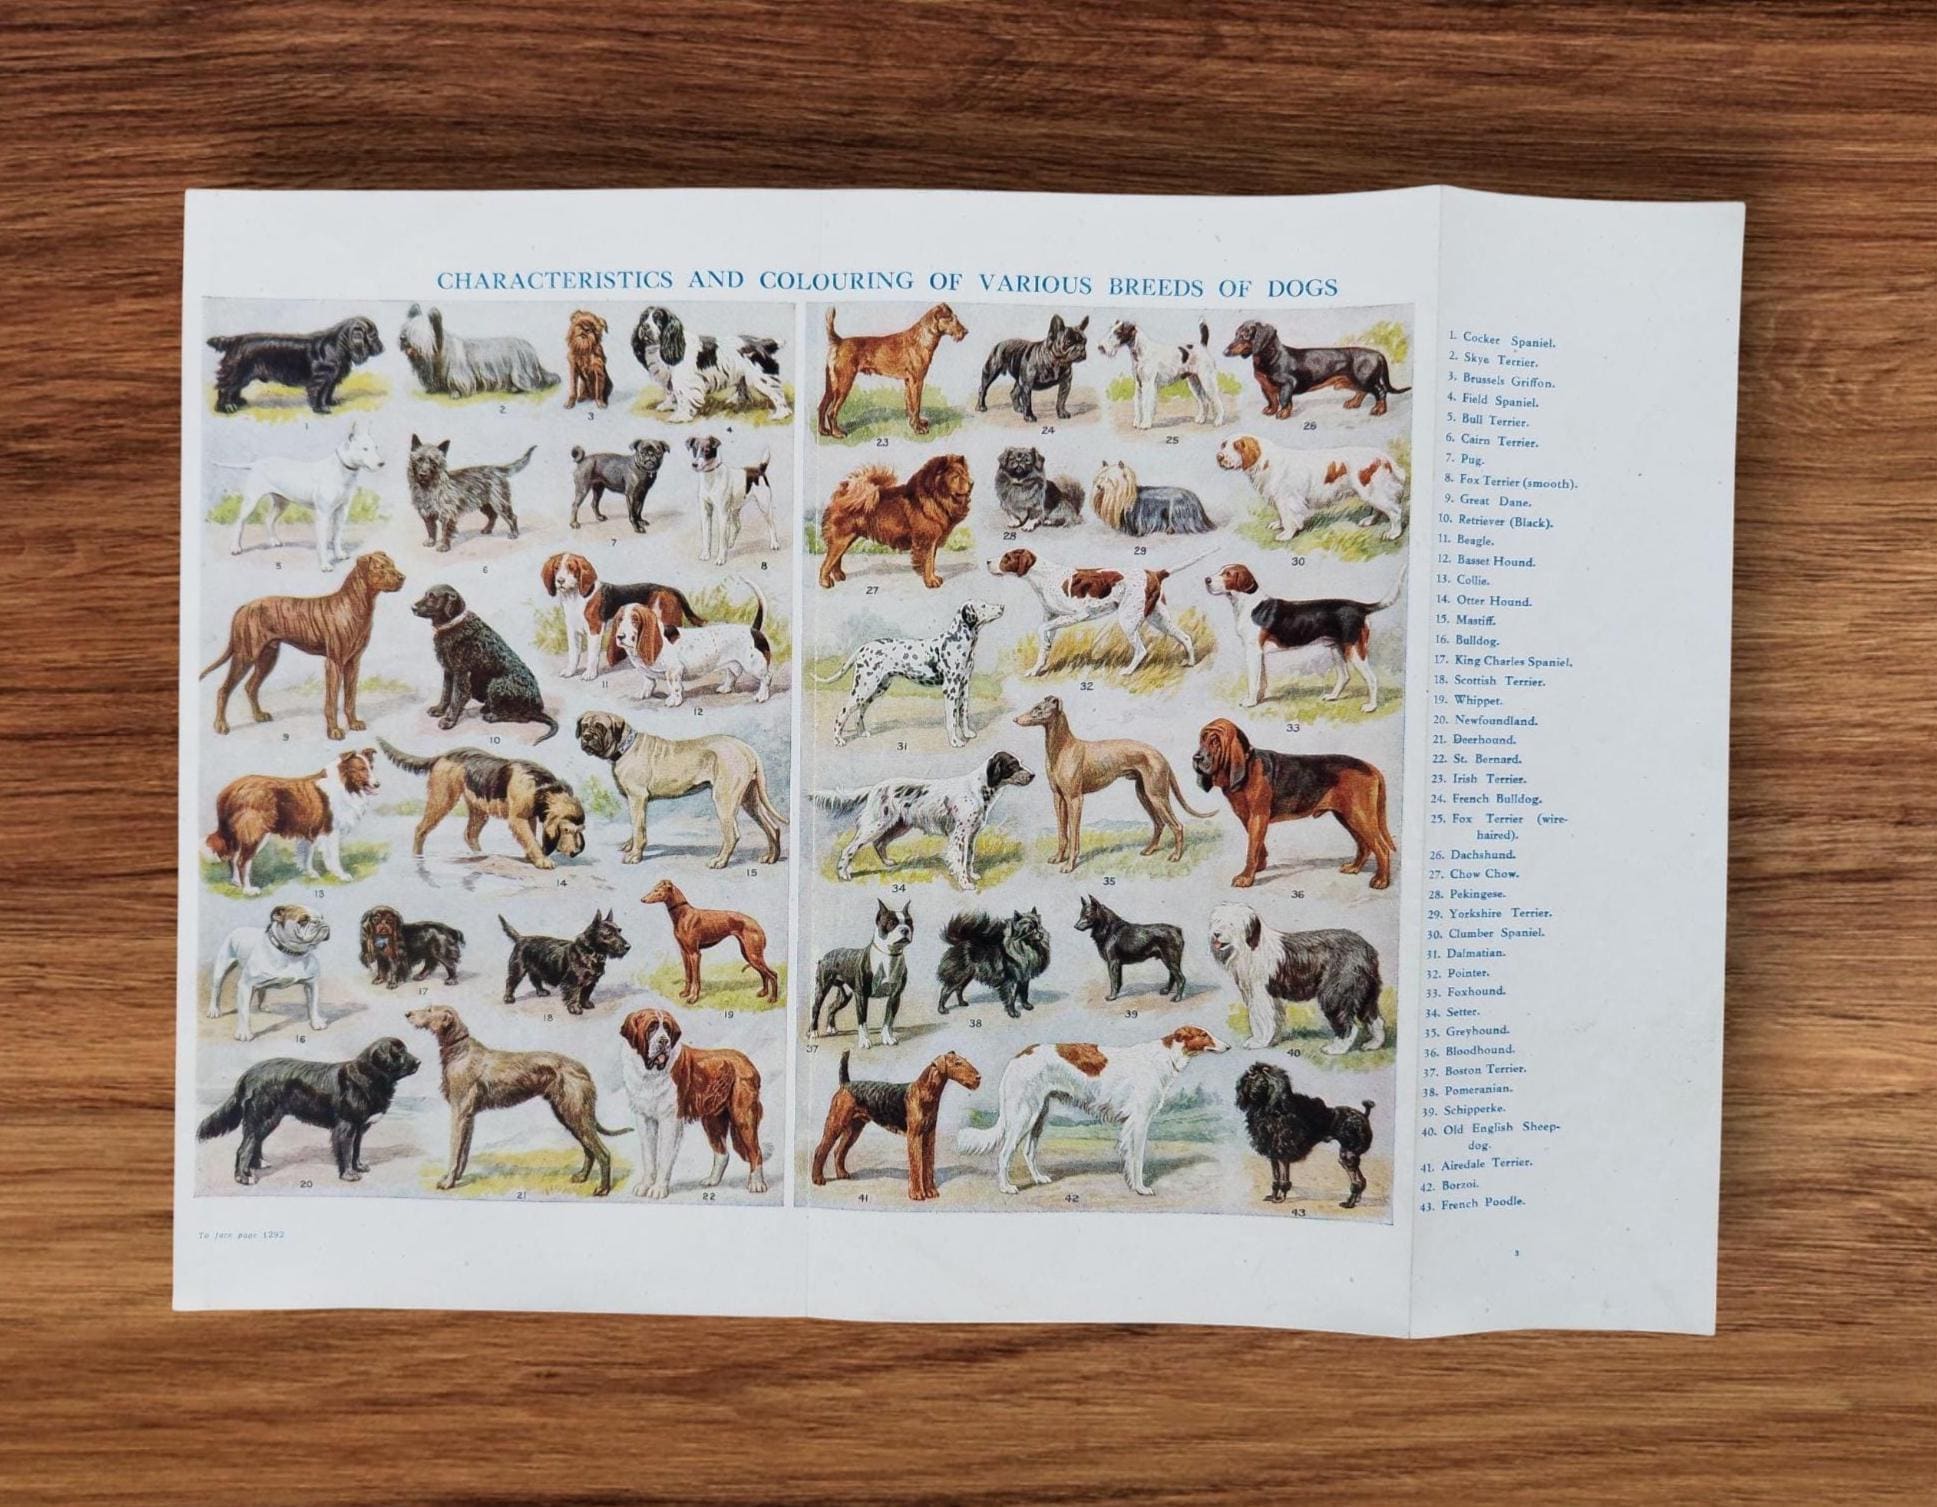 CHARACTERISTICS AND COLOURING OF VARIOUS BREEDS OF DOGS
1
2
3
4
5
6
7
8
9
10
11
12
13
14
15
16
17
18
19
20
21
22
23
24
25
26
27
28
29
30
31
32
33
34
35
36
37
38
39
40
41
42
43
1. Cocker Spaniel.
2. Skye Terrier.
3. Brussels Griffon.
4. Field Spaniel.
5. Bull Terrier.
6. Cairn Terrier.
7. Pug.
8. Fox Terrier (smooth).
9. Great Dane.
10. Retriever (Black).
11. Beagle.
12. Basset Hound.
13. Collie.
14. Otter Hound.
15. Mastiff.
16. Bulldog.
17. King Charles Spaniel.
18. Scottish Terrier.
19. Whippet.
20. Newfoundland.
21. Deerhound.
22. St. Bernard.
23. Irish Terrier.
24. French Bulldog.
25. Fox Terrier (wire-
haired).
26. Dachshund.
27. Chow Chow.
28. Pekingese.
29. Yorkshire Terrier.
30. Clumber Spaniel.
31. Dalmatian.
32. Pointer.
33. Foxhound.
34. Setter.
35. Greyhound.
36. Bloodhound.
37. Boston Terrier.
38. Pomeranian.
39. Schipperke.
40. Old English Sheep-
dog.
41. Airedale Terrier.
42. Borzoi.
43. French Poodle.
To face page 1292
3